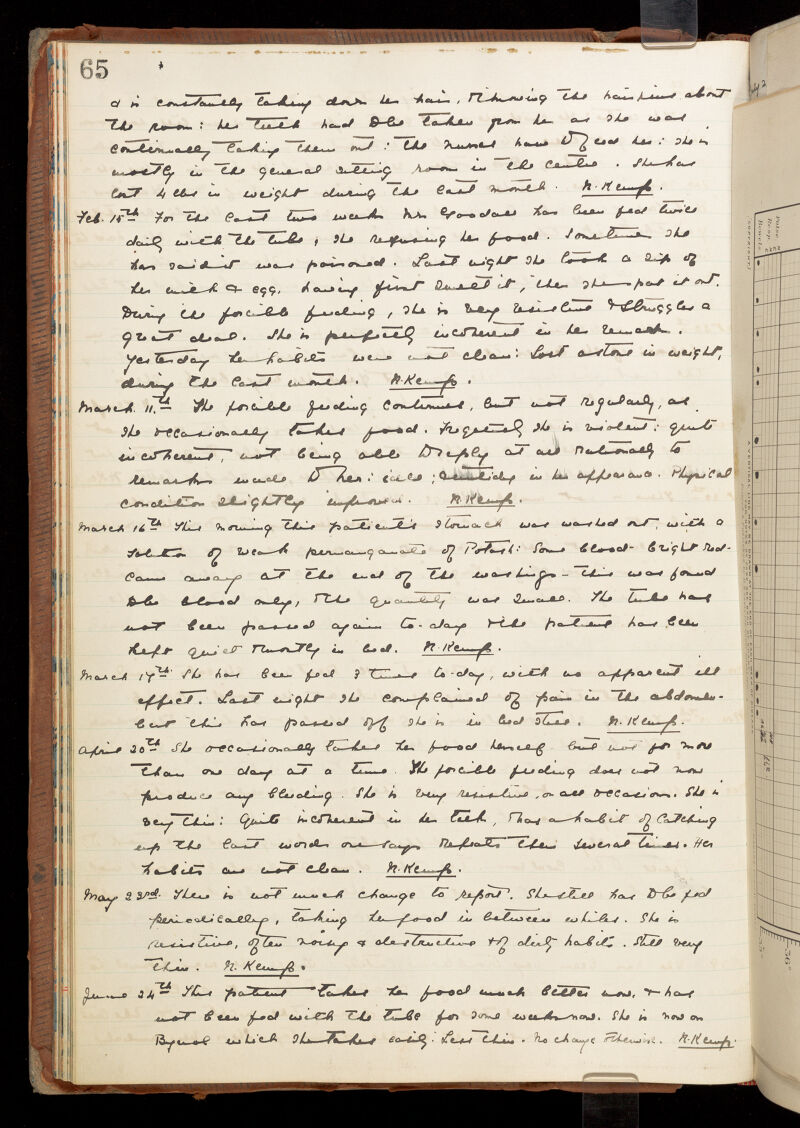 65
& is constantly taking down her hair, & throwing the hairpins about
the room: her teeth had to be taken from her as she was
continually taking them out: the nurses have to feed her: she is
mostly in the general sitting room in the centre. She has
lost 4 lbs in weight during the last month. N. Kemp.
Feb. 15th For the last two weeks Mrs Goodall has been fed twice
daily with the tube, she refusing her food. Sometimes she
has said it was poisoned. Last night she took a sip of
her milk & egg, having first smelt it, then she spat it out.
During the forcible feeding, she is very resistive & struggles a
great deal. She is perfectly incoherent in her remarks.
Yesterday her habits were not clean: Lost a stone in weight,
during the last month. N. Kemp.
March 11th The forcible feeding continues, but not regularly, as
she occasionally takes food. Frequently she is violent: quite
incoherent, not being able to reply at all rationally to
remarks made to her: untidy in her appearance. Physical
condition slightly improved. N. Kemp.
March 16th This morning this patient's stomach was washed out, with a
solution of weak permanganate of Potash: Some blood - bright red -
came away at the end of the washings - this was found
to be blood only, & the quantity was small. The tube has
not been passed again to-day & the patient has been
kept quiet & mostly in bed. N. Kemp.
March 17th She has been fed 3 times to-day, with no apparent ill
effect. Last night she complained of pain in the abdomen -
but this has passed off she is in bed still. N. Kemp.
April 20th She occasionally takes her food herself but not for more
than one day at a time. The forcible feeding does not now
produce any bleeding. She is very resistive, on all occasions. She is
very thin: Quite incoherent in her talk, & has a habit of catching
up the last words one says & repeats them several times. Her
habits are not clean. N. Kemp.
May 23rd. There is not much change to report. She still has to be fed
periodically, taking her food in between whiles. She is
resistive, often noisy & destructive & of dirty habits. Still very
thin. N. Kemp.
June 24th This patient takes her food much better now, & has
not been fed with the tube for some weeks now. She is now on
Bynol which she takes easily: Less thin. No change otherwise. N. Kemp.